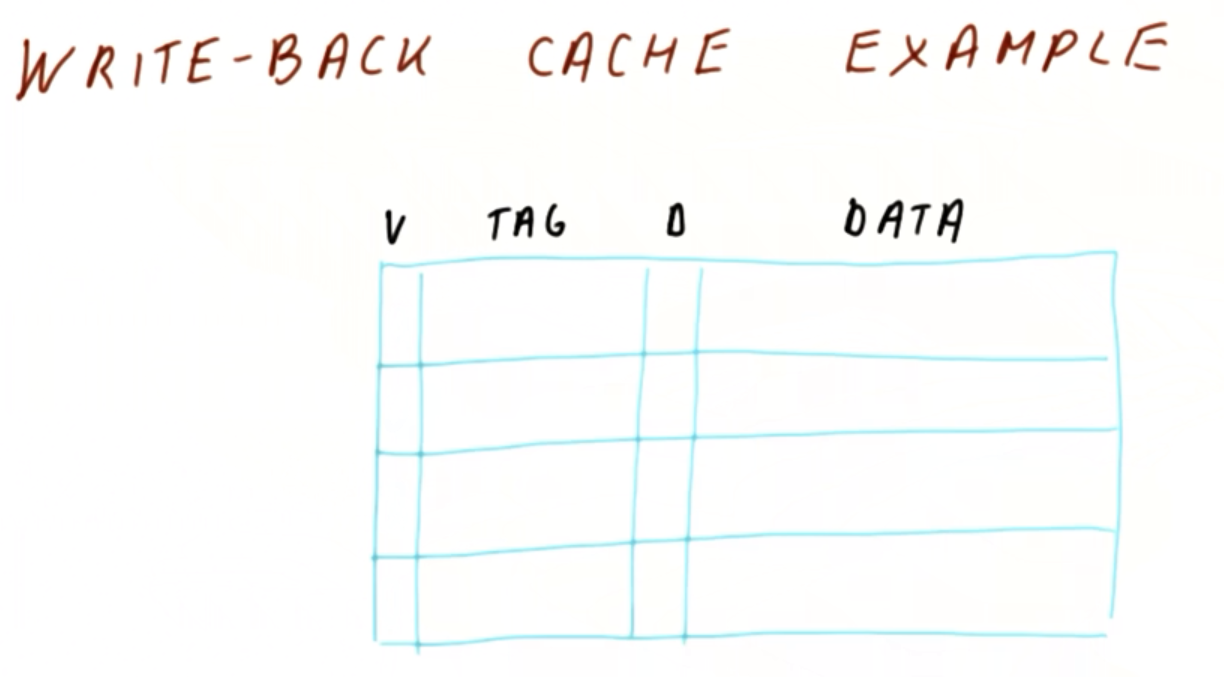 WRITE-BACK CACHE EXAMPLE
V TAG D DATA